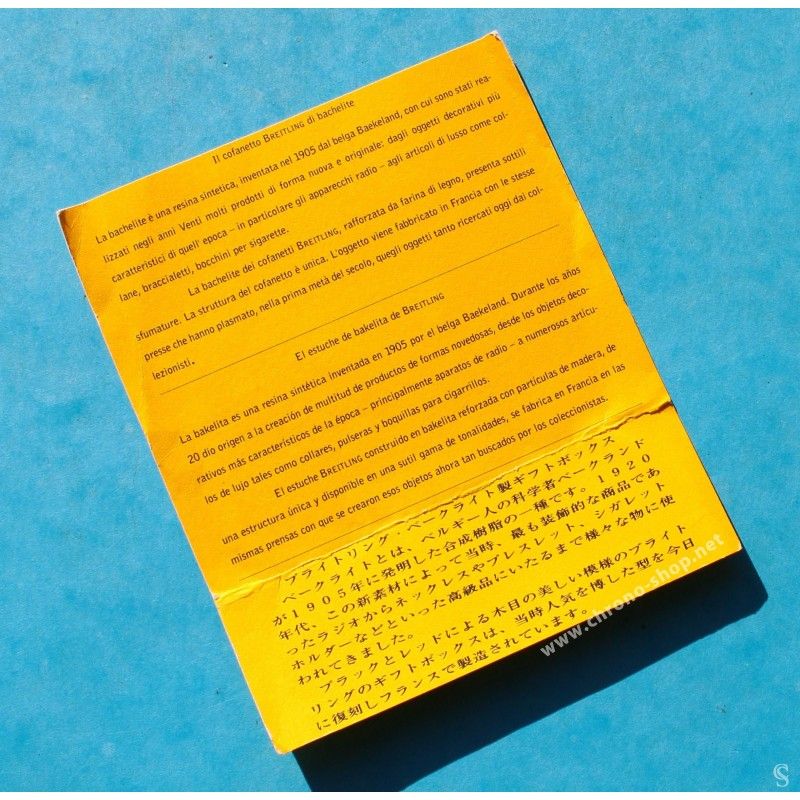 Il cofanetto BREITLING di bachelite
La bachelite è una resina sintetica, inventata nel 1905 dal belga Baekeland, con cui sono stati rea-
lizzati negli anni Venti molti prodotti di forma nuova e originale: dagli oggetti decorativi più
caratteristici di quell' epoca – in particolare gli apparecchi radio – agli articoli di lusso come col-
lane, braccialetti, bocchini per sigarette.
La bachelite dei cofanetti BREITLING, rafforzata da farina di legno, presenta sottili
sfumature. La struttura del cofanetto è unica. L'oggetto viene fabbricato in Francia con le stesse
presse che hanno plasmato, nella prima metà del secolo, quegli oggetti tanto ricercati oggi dai col-
lezionisti.
El estuche de bakelita de BREITLING
La bakelita es una resina sintética inventada en 1905 por el belga Baekeland. Durante los años
20 dio origen a la creación de multitud de productos de formas novedosas, desde los objetos deco-
rativos más característicos de la época – principalmente aparatos de radio – a numerosos artícu-
los de lujo tales como collares, pulseras y boquillas para cigarrillos.
El estuche BREITLING construido en bakelita reforzada con partículas de madera, de
una estructura única y disponible en una sutil gama de tonalidades, se fabrica en Francia en las
mismas prensas con que se crearon esos objetos ahora tan buscados por los coleccionistas.
ブライトリング・ベークライト製ギフトボックス
ベークライトとは、ベルギー人の科学者ベークランド
が1905年に発明した合成樹脂の一種です。1920
年代、この新素材によって当時、最も装飾的な商品であ
ったラジオからネックレスやブレスレット、シガレット
ホルダーなどといった高級品にいたるまで様々な物に使
われてきました。
ブラックとレッドによる木目の美しい模様のブライト
リングのギフトボックスは、当時人気を博した型を今日
に復刻しフランスで製造されています。
www.chrono-shop.net